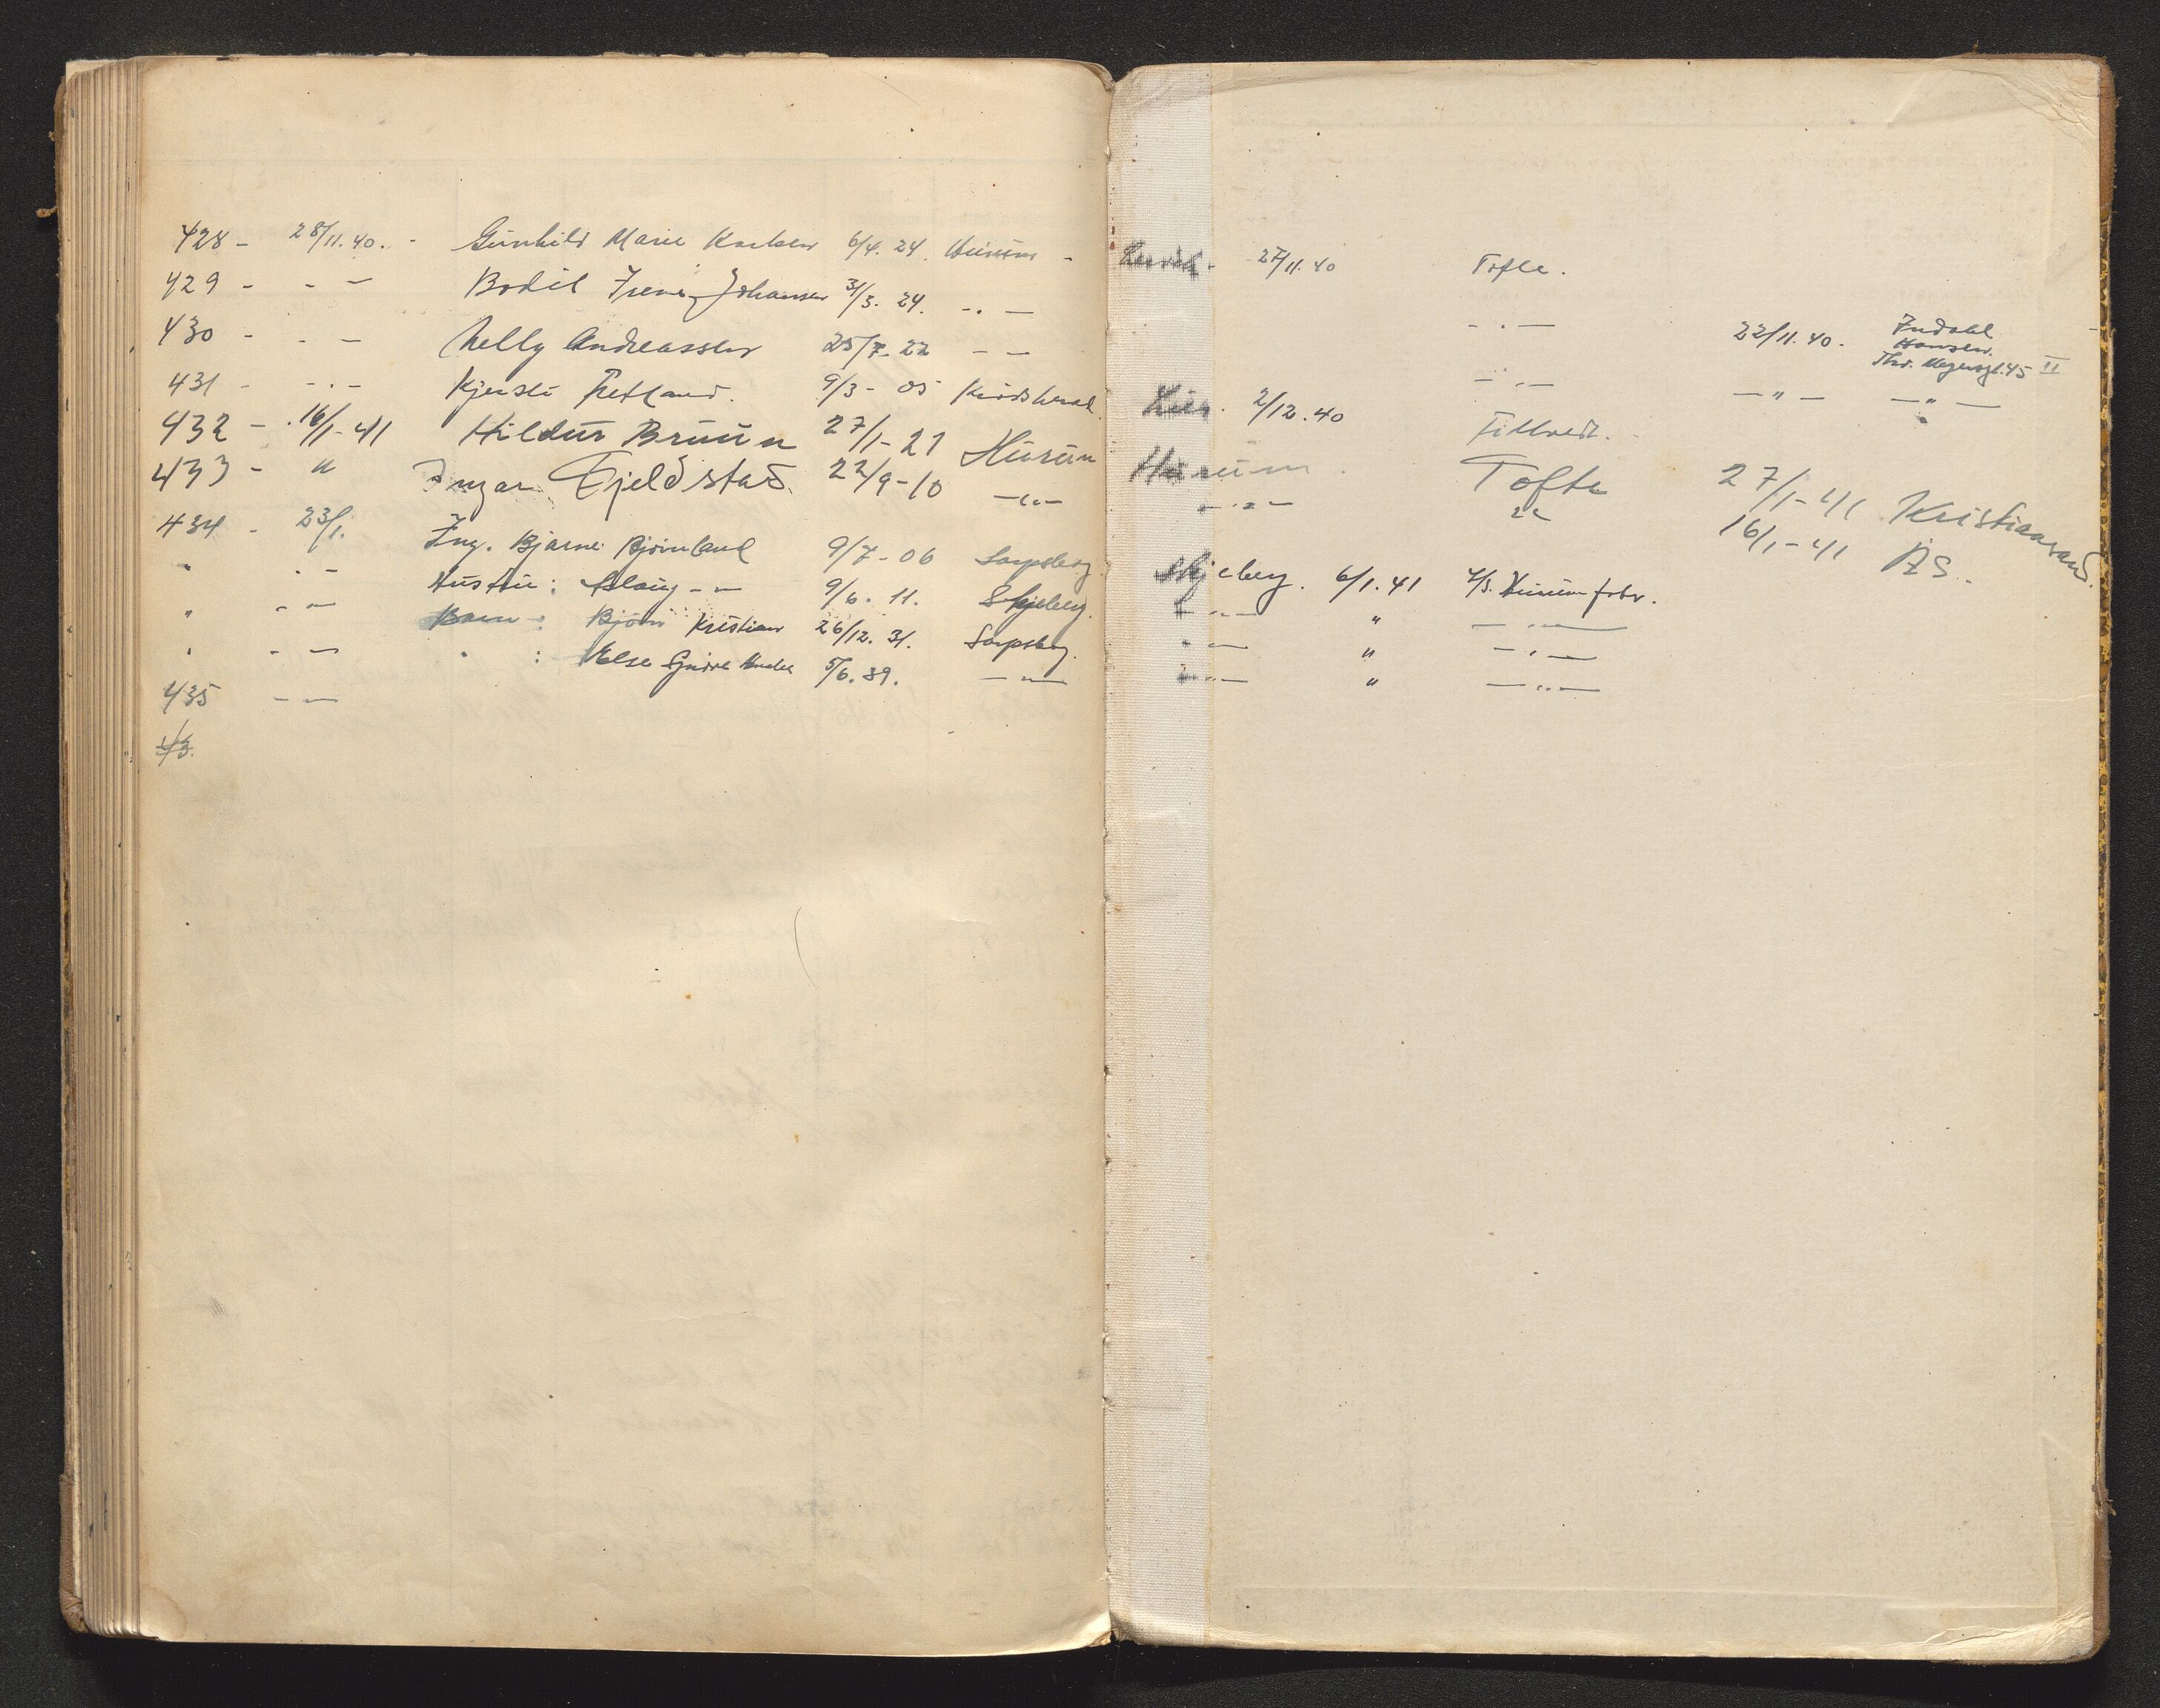 428 - 28/11.40. - Gunhild Marie Karlsen 6/4.24. Hurum - 27/11.40 Tofte.
429 - - - Bodil Irene Johansen 31/3.24. -.- -.-
430 - - - Nelly Andreassen 25/7.22 - - -.- 22/11.40. Hansen. Thv. Meyersgt. 45 II
431 - -.- Kjersti 9/3 - 05 Lier. 2/12.40 -"- -"-
432 - 16/1-41 Hildur Bruun 27/1-21 Hurum Hurum. Tofte 27/1-41 Kristiansand.
433 - " Ingar Fjeldstad. 22/9-10 -"- -"- " 16/1-41 Ås.
434 - 23/1. Ing. Bjarne Bjørnland 9/7-06 Sarpsborg. Skjeberg. 6/1.41 Hurum fabr.
" -.- Hustru: Aslaug -"- 9/6.11. Skjeberg. -"- " -"-
" -"- Barn: Bjørn Kristian 26/12.31. Sarpsborg. -"- " -"-
" - - " : Else 5/6.39. -"- -"- " -"-
435 - -
43.